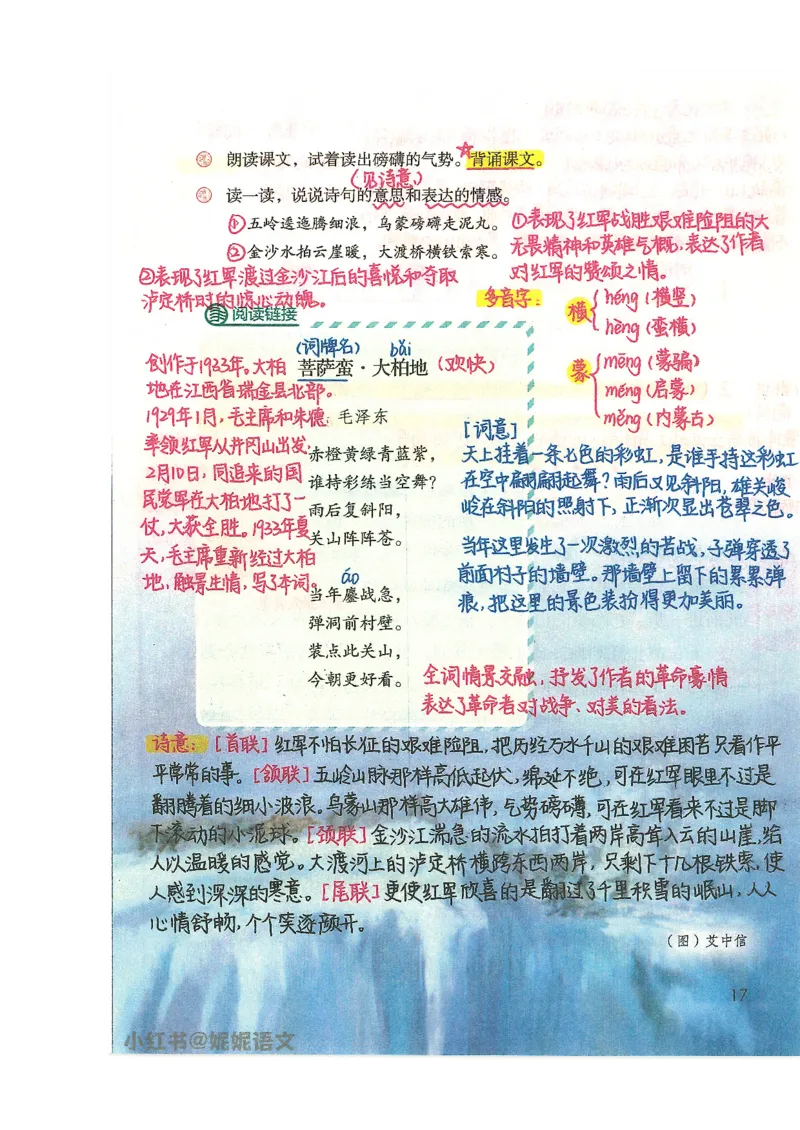 朗读课文，试着读出磅礴的气势。☆背诵课文。
（见诗意）
读一读，说说诗句的意思和表达的情感。
①五岭逶迤腾细浪，乌蒙磅礴走泥丸。
②金沙水拍云崖暖，大渡桥横铁索寒。
①表现了红军战胜艰难险阻的大
无畏精神和英雄气概，表达了作者
对红军的赞颂之情。
②表现了红军渡过金沙江后的喜悦和夺取
泸定桥时的惊心动魄。
多音字：
横 héng（横竖）
hèng（蛮横）
蒙 mēng（蒙骗）
méng（启蒙）
měng（内蒙古）
阅读链接
（词牌名） bǎi
菩萨蛮·大柏地（欢快）
毛泽东
创作于1933年。大柏
地在江西省瑞金县北部。
1929年1月，毛主席和朱德
率领红军从井冈山出发，
2月10日，同追来的国
民党军在大柏地打了一
仗，大获全胜。1933年夏
天，毛主席重新经过大柏
地，触景生情，写了本词。
赤橙黄绿青蓝紫，
谁持彩练当空舞？
雨后复斜阳，
关山阵阵苍。
áo
当年鏖战急，
弹洞前村壁。
装点此关山，
今朝更好看。
［词意］
天上挂着一条七色的彩虹，是谁手持这彩虹
在空中翩翩起舞？雨后又见斜阳，雄关峻
岭在斜阳的照射下，正渐次显出苍翠之色。
当年这里发生了一次激烈的苦战，子弹穿透了
前面村子的墙壁。那墙壁上留下的累累弹
痕，把这里的景色装扮得更加美丽。
全词情景交融，抒发了作者的革命豪情
表达了革命者对战争、对美的看法。
诗意：［首联］红军不怕长征的艰难险阻，把历经万水千山的艰难困苦只看作平
平常常的事。［颔联］五岭山脉那样高低起伏，绵延不绝，可在红军眼里不过是
翻腾着的细小波浪。乌蒙山那样高大雄伟，气势磅礴，可在红军看来不过是脚
下滚动的小泥球。［颈联］金沙江湍急的流水拍打着两岸高耸入云的山崖，给
人以温暖的感觉。大渡河上的泸定桥横跨东西两岸，只剩下十几根铁索，使
人感到深深的寒意。［尾联］更使红军欣喜的是翻过了千里积雪的岷山，人人
心情舒畅，个个笑逐颜开。
（图）艾中信
17
小红书@妮妮语文